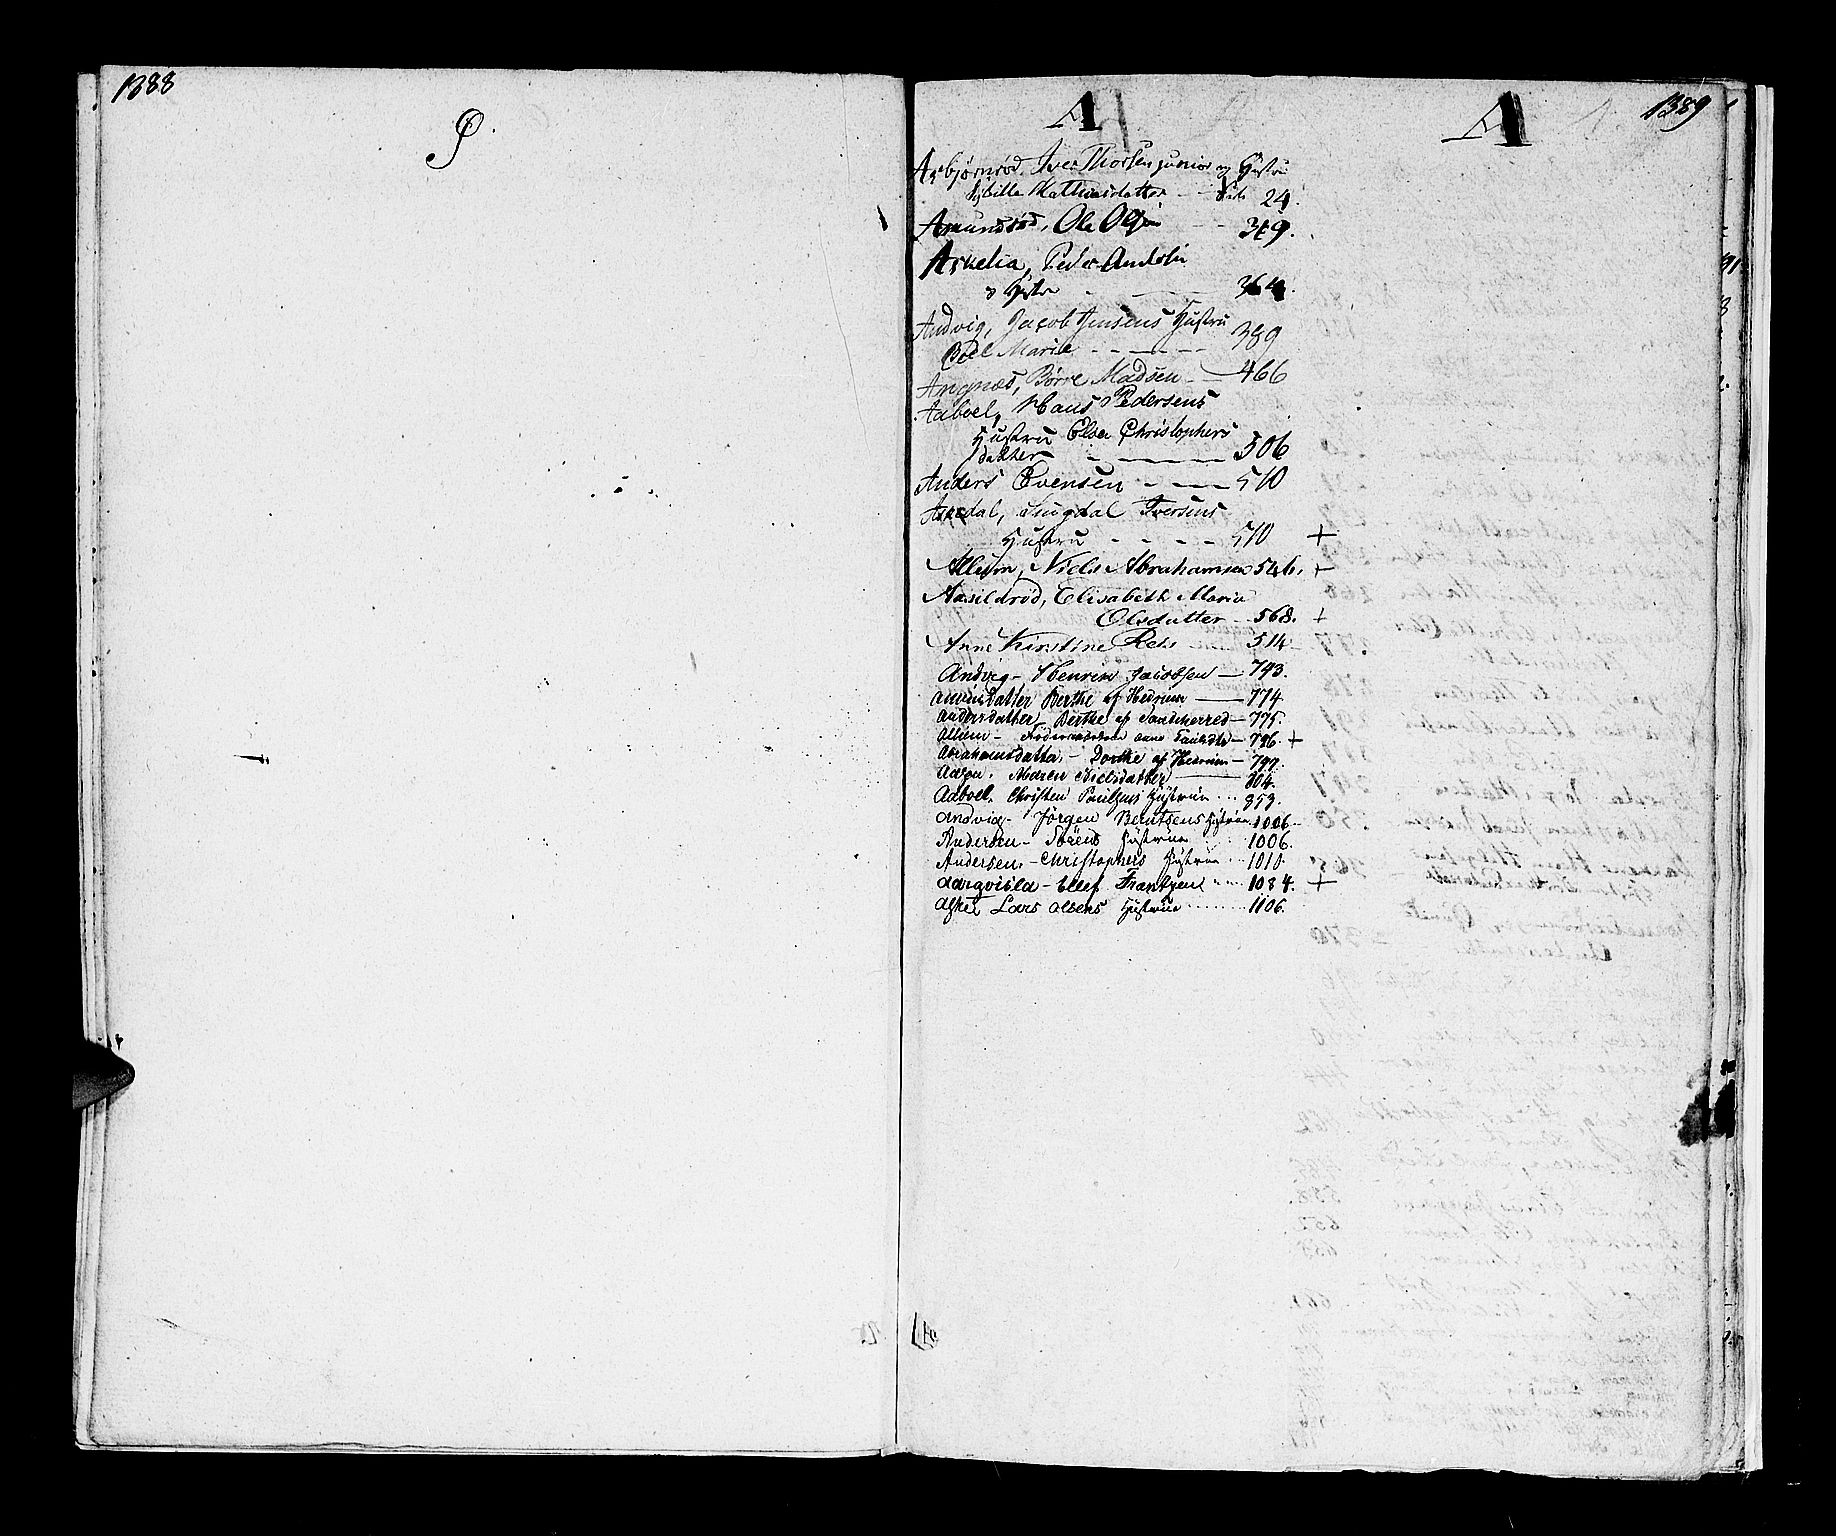 1388
A A 1389
Asbjørnrød, Iver Thorsen junior og Hustru
Sibille Mathiasdatter - - Side 24.
Amundrød, Ole Olsen - - 349.
Askelia, Peder Andersen
og Hustru - - 364.
Andvig, Jacob Jensens Hustru
Boel Maria - - - - - 389
Angnæs, Børre Madsen - - 466
Aaboel, Hans Pedersens
Hustru Elsa Christophers
datter - - - - 506
Anders Evensen - - - 510
Askedal, Iversens
Hustru - - - - 510 +
Allum, Niels Abrahamsen 546. +
Aasildrød, Elisabeth Maria
Olsdatter - 568. +
Anne Kirstine Reis - 514
Andvig - Henrik Jacobsen - 743.
Datter Berthe af Hedrum - 774
Andersdatter Berthe af Sandeherred - 775.
Allum - anne - 796. +
Abrahamsdatter - Dorthe af Hedrum - 797.
Maren Nielsdatter - 804.
Aaboel, Christen Paulsens Hustrue ... 853.
Andvig - Jörgen Bentsens Hustrue 1006
Andersen - Sörens Hustrue 1006.
Andersen - Christophers Hustrue ... 1010
Aarqvisla - Ellef Frantzen ... 1084. +
Lars Olsens Hustrue ....... 1106.